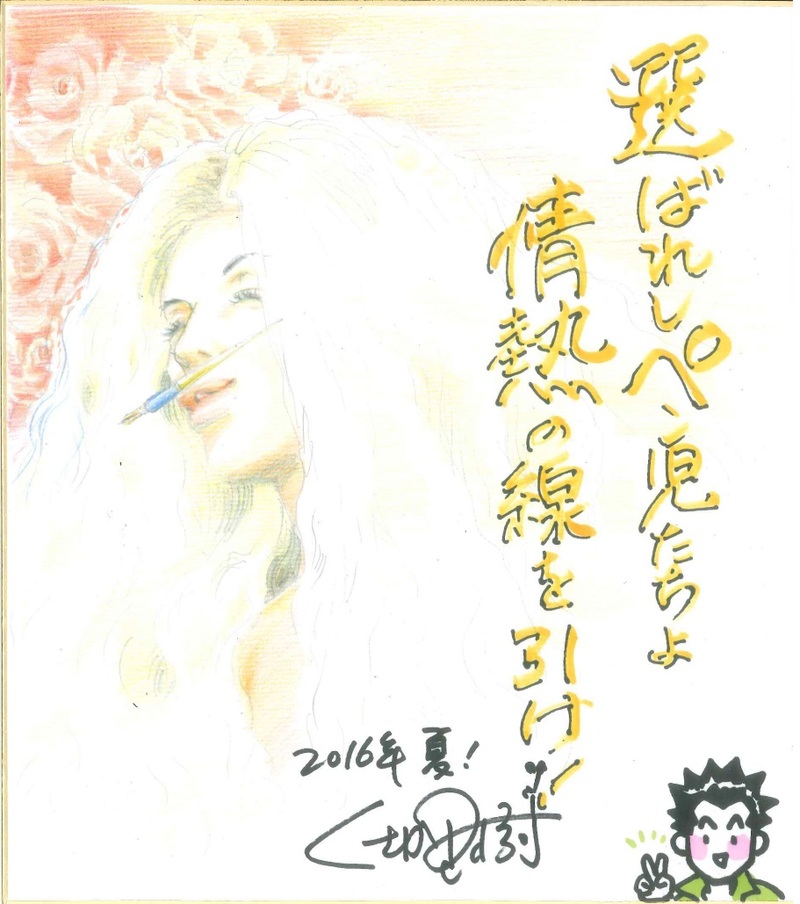 選ばれしペン児たちよ
情熱の線を引け!!
2016年 夏!